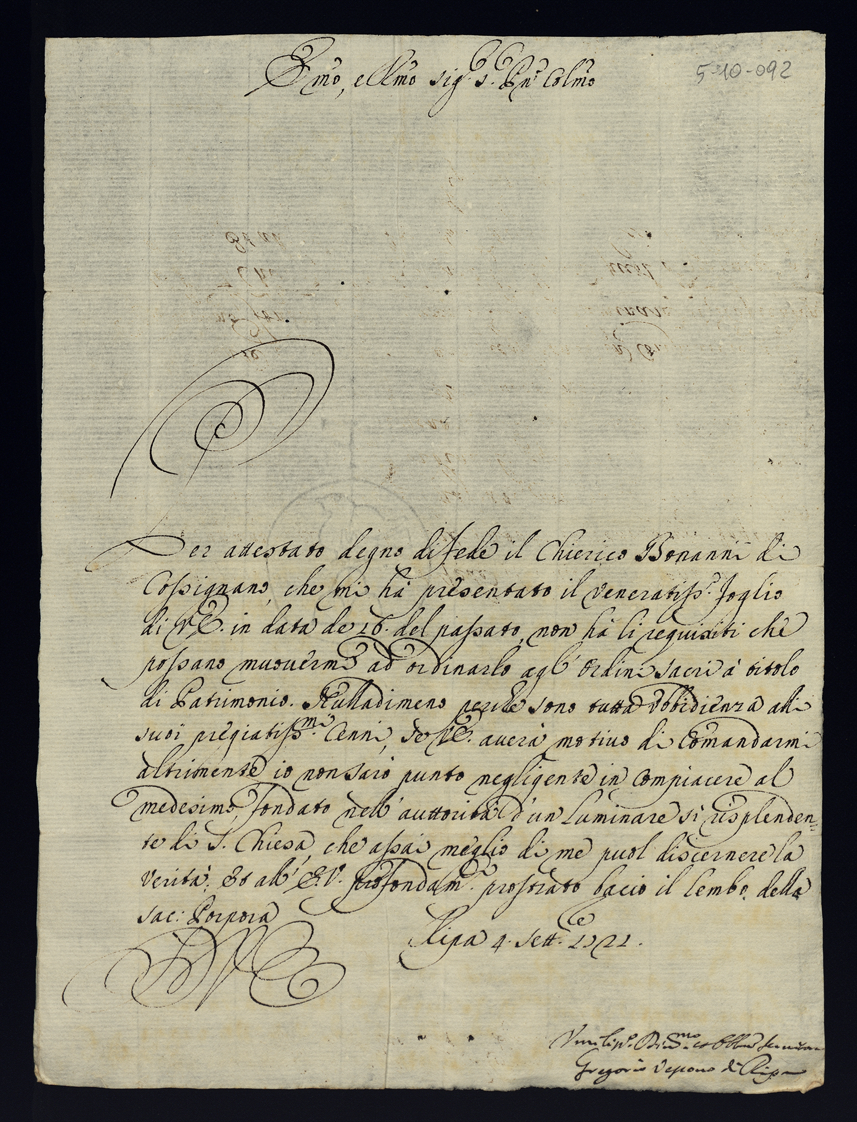 Emo, e Rmo Sig.r S. Pn' Colmo
5-10-092
Per attestato degno di fede il Chierico Bonanni di
Cossignano, che mi hà presentato il veneratiss.o foglio
di V.E. in data de 16. del passato, non hà li requisiti che
possano muovermi ad ordinarlo agl'Ordini sacri à titolo
di Patrimonio. Nulladimeno perche sono tutta Vbbidienza alli
suoi pregiatiss.mi Cenni, se V.E. averà motivo di Comandarmi
altrimente io non sarò punto negligente in Compiacere al
medesimo, fondato nell'auttorità d'un Luminare si risplenden=
te di S. Chiesa, che assai meglio di me puol discernere la
verità; Et all'E.V. profondam.te prostrato bacio il lembo della
sac: Porpora
Ripa 4. Sett.re 1721.
DVE
Vmiliss.o Div.mo et Obb.mo Servitore
Gregorio Vescovo di Ripa